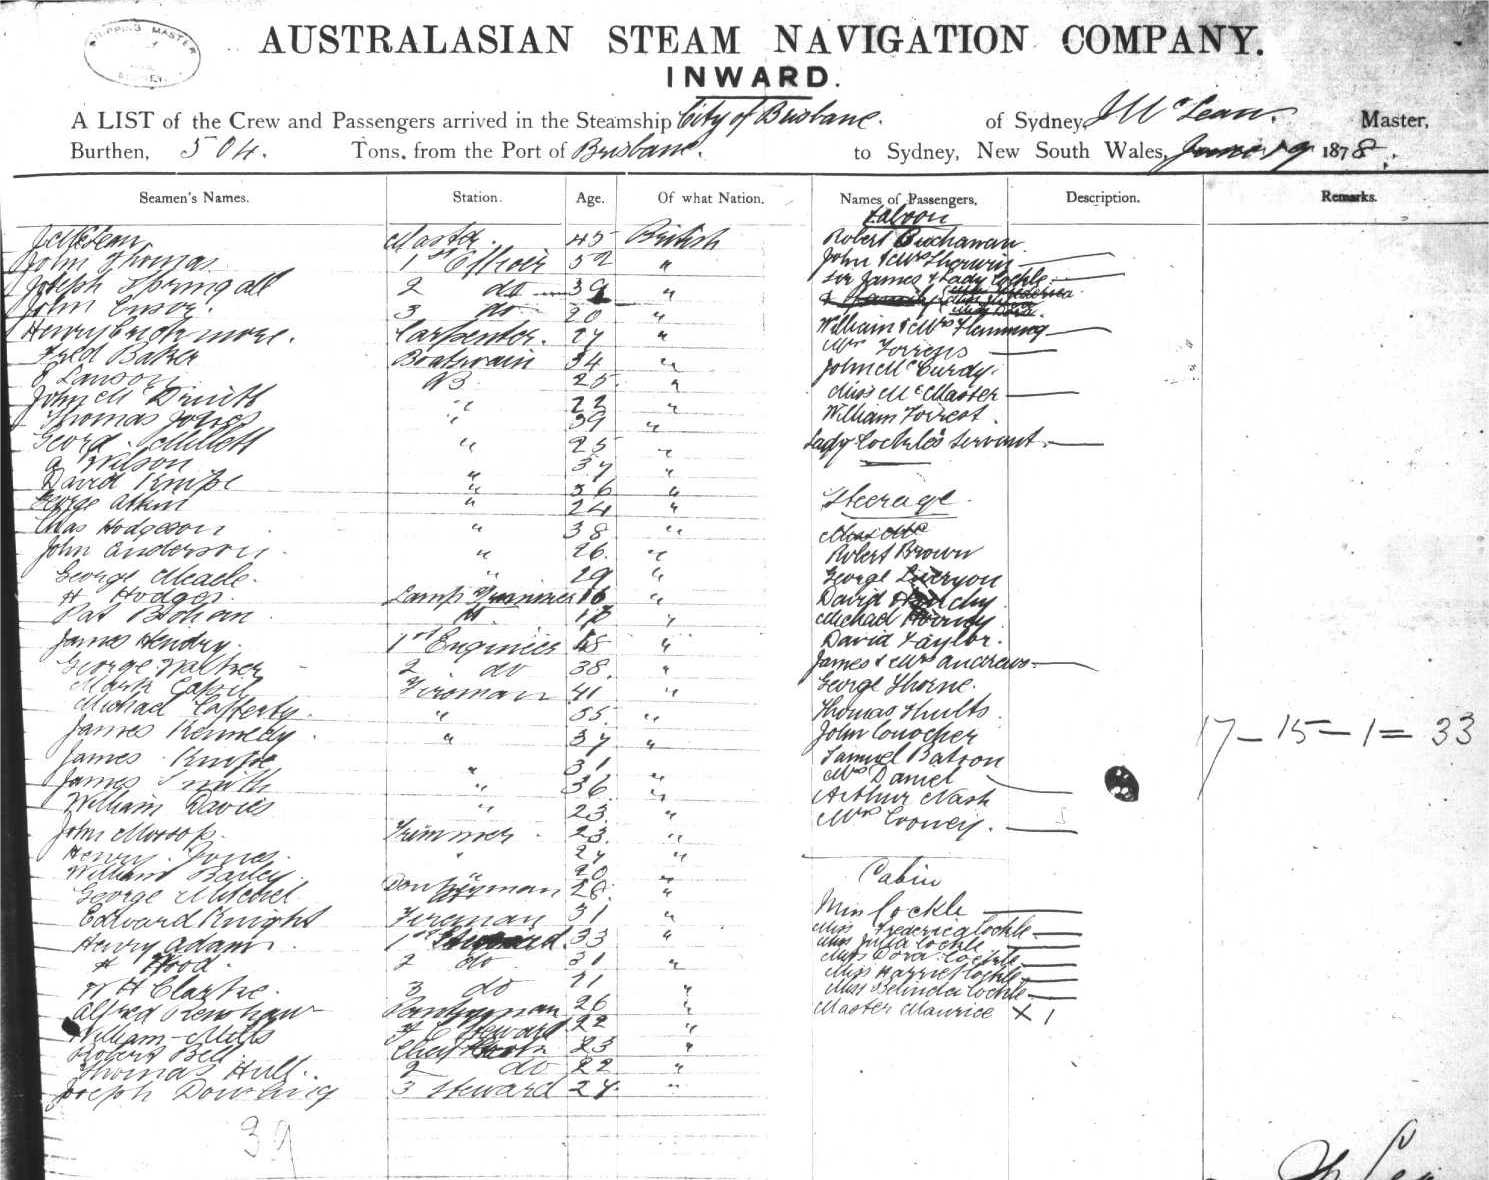 SHIPPING MASTER
AUSTRALASIAN STEAM NAVIGATION COMPANY.
INWARD.
A LIST of the Crew and Passengers arrived in the Steamship City of Brisbane. of Sydney, J McLean. Master,
Burthen, 504. Tons, from the Port of Brisbane. to Sydney, New South Wales, June 19 1878.
Seamen's Names. Station. Age. Of what Nation. Names of Passengers, Description. Remarks.
J McLean Master. 45 British
John Thomas 1st Officer 52 "
Joseph Springall 2 do 39 "
John 3 do 20 "
Henry Carpenter. 27 "
Fred Baker Boatswain 34 "
Lawson AB 25 "
John M " 22 "
Thomas Jones " 39 "
" 25 "
a Wilson 37 "
David Knipe " 36 "
George Atkin " 24 "
Chas Hodgeson " 38 "
John Anderson " 26 "
George Meade. " 29 "
H Hodges Lamp Trimmer 16 "
Pat 17 "
James Hendry. 1st Engineer 48 "
George Walker 2 do 38. "
Mark Fireman 41 "
Michael Cafferty. " 35 "
James Kennedy. " 37 "
James Knipe 31
James Smith " 36 "
William Davies " 23 "
John Trimmer. 23. "
Henry Jones. " 27 "
William Bailey. " 20 "
George Mitchel 28 "
Edward Knight Fireman 31 "
Henry Adam 1st Steward. 33 "
H Hood. 2 do 31 "
W H Clarke. 3 do 21 "
Alfred Pantryman 26 "
William Mills Steward 22 "
Robert Bell Chief Cook 23 "
Thomas Hull. 2 do 22 "
Joseph Dowling 3 Steward 24. "
39
Saloon
Robert Buchanan
John & Mrs Sherwin
Sir James & Lady Cockle
& family Miss Frederica
William & Mrs Flemming
Mr Torrens
John McCurdy.
Miss McMaster
William Forrest.
Lady Cockle's Servant.
Steerage.
Robert Brown
George
David
Michael
David Taylor.
James & Mrs Andrews
George Thorne.
Thomas
John Conocher
Samuel Batson
Mrs Daniel
Arthur Nash
Mrs Cooney.
17 - 15 - 1 = 33
Cabin
Miss Cockle
Miss Frederica Cockle
Miss Julia Cockle
Miss Dora Cockle
Miss Harriet Cockle
Miss Belinda Cockle
Master Maurice X 1